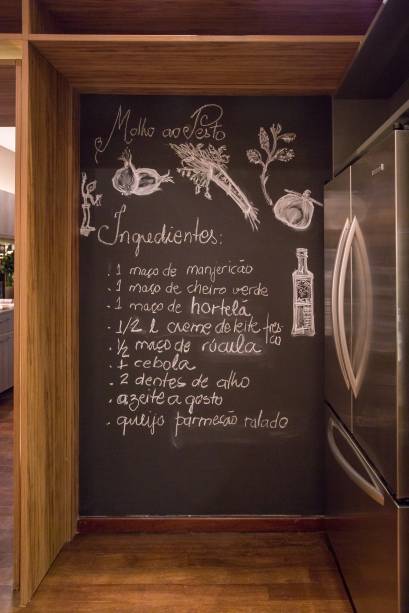 Molho ao Pesto
Ingredientes:
. 1 maço de manjericão
. 1 maço de cheiro verde
. 1 maço de hortelã
. 1/2 l creme de leite fresco
. ½ maço de rúcula
. 1 cebola
. 2 dentes de alho
. azeite a gosto
. queijo parmeção ralado